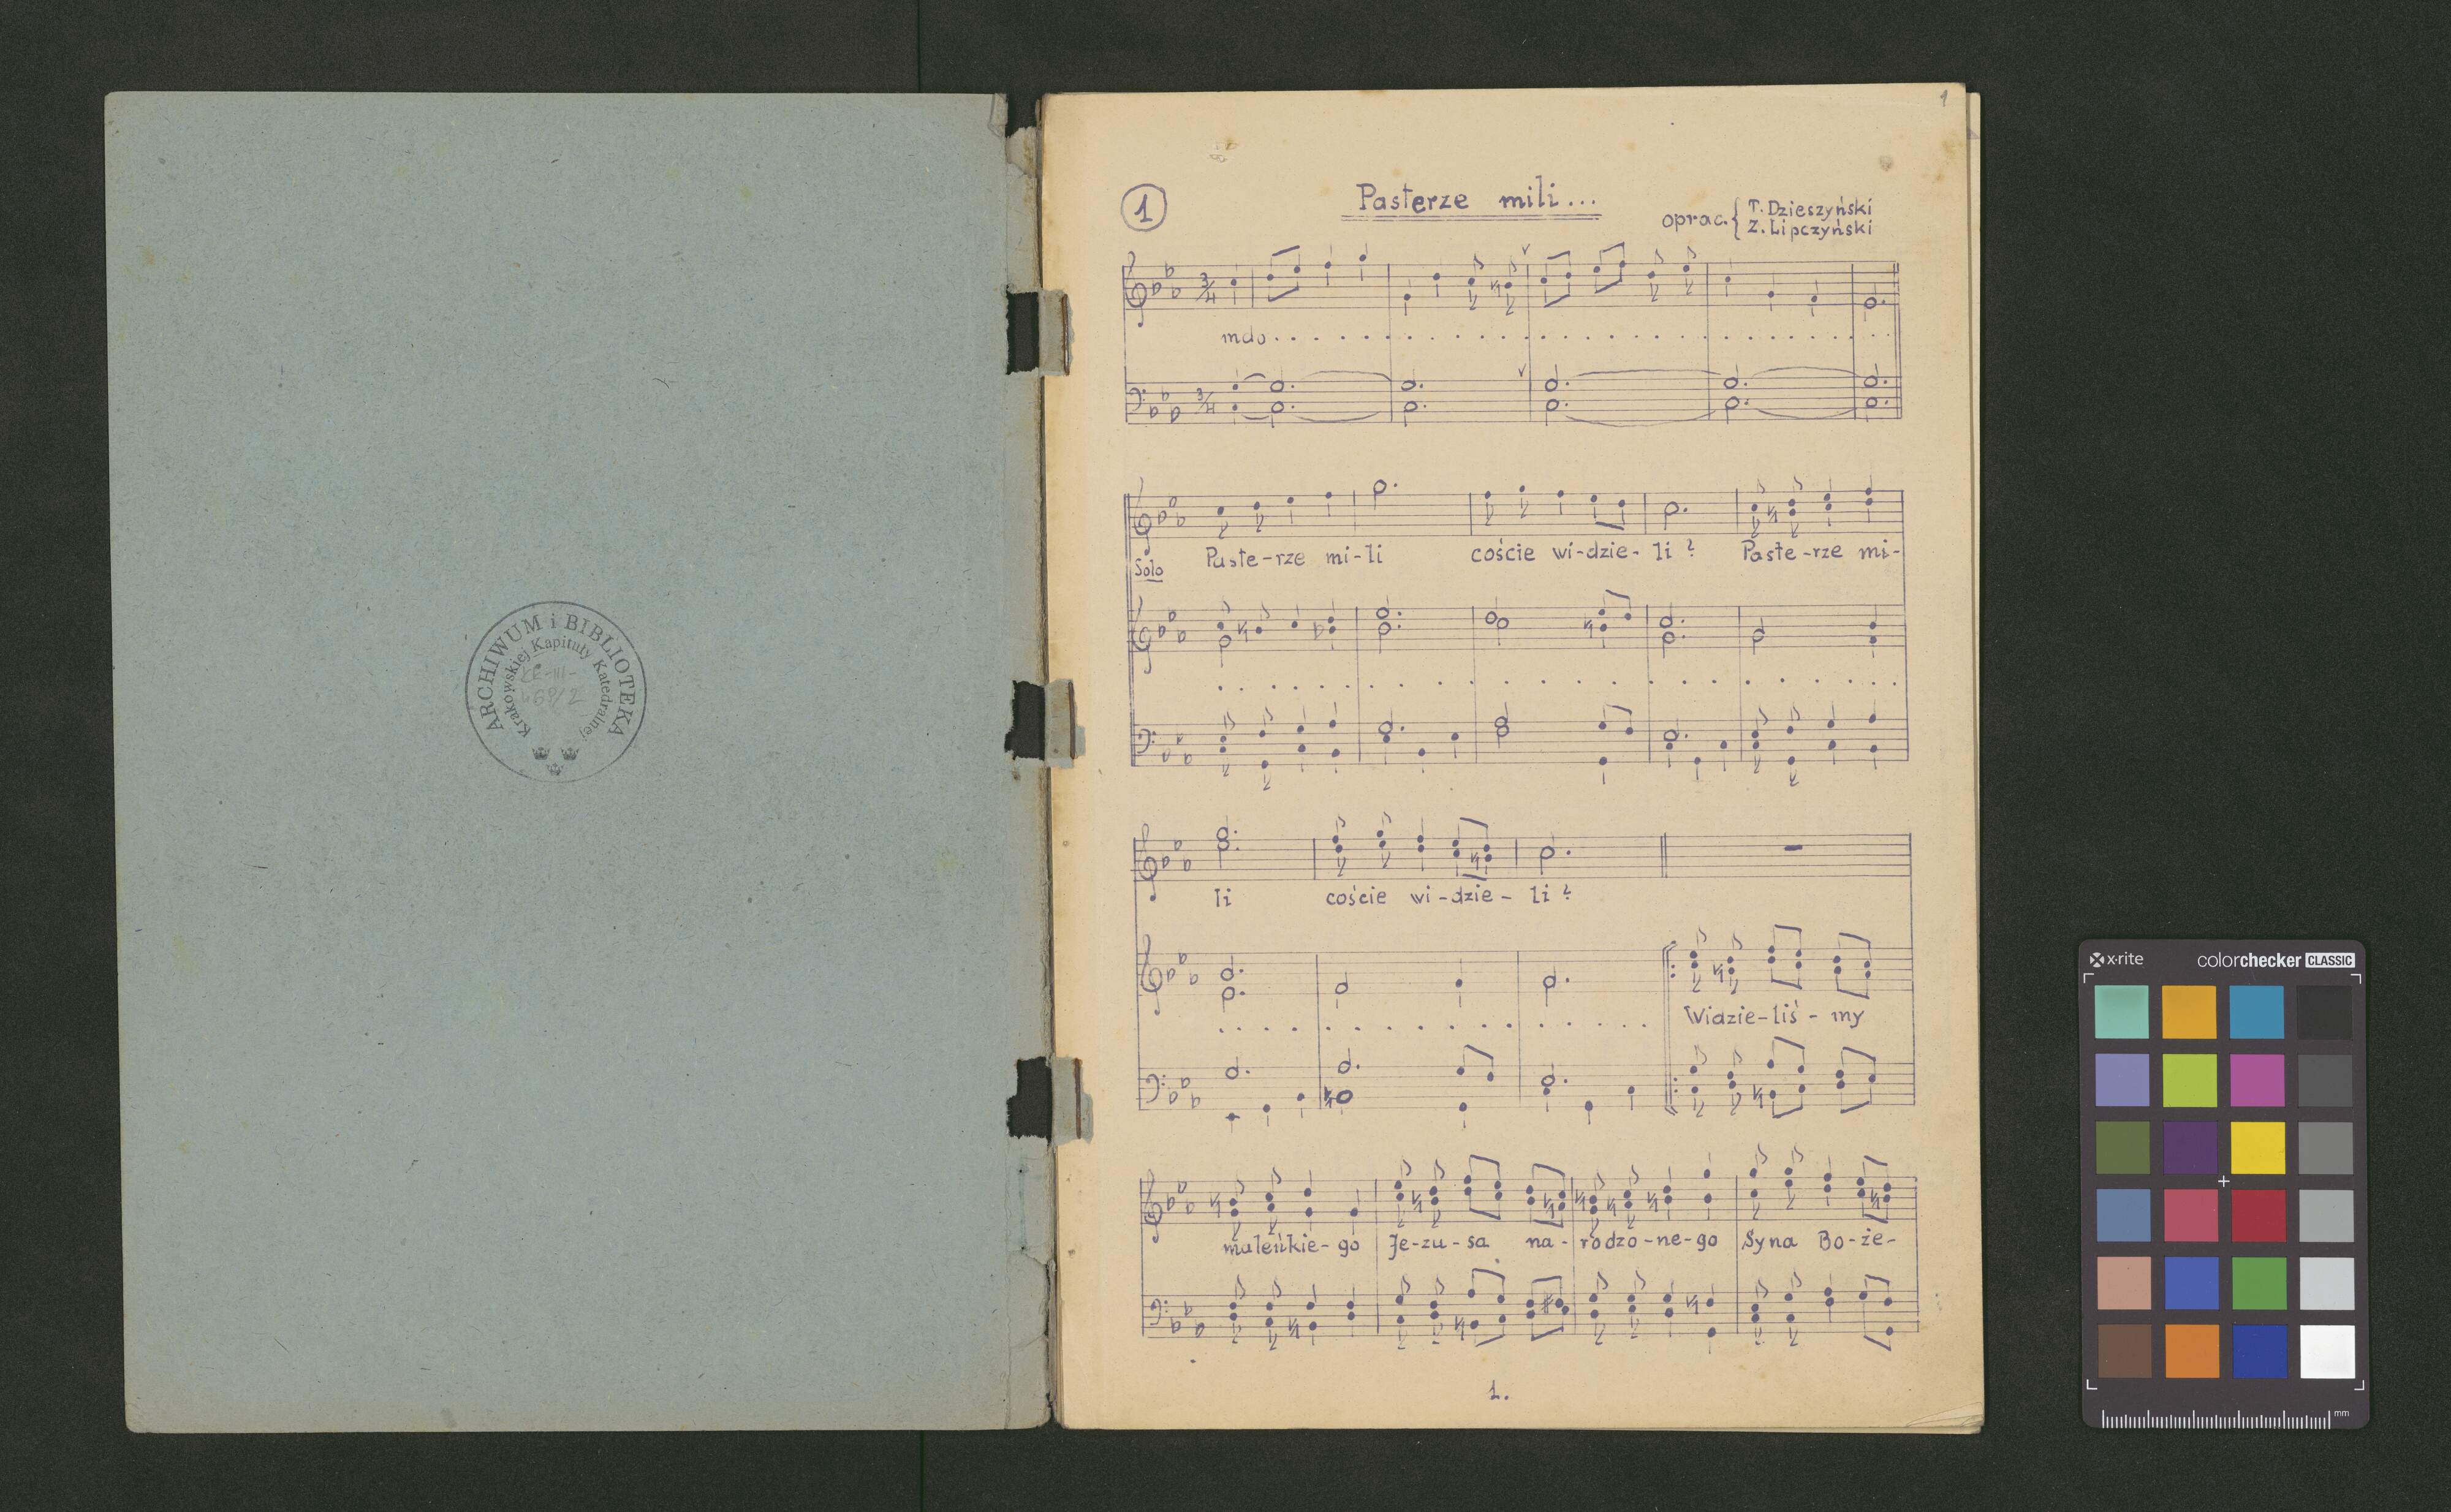 ARCHIWUM i BIBLIOTEKA
Krakowskiej Kapituły Katedralnej
1
1
Pasterze mili...
oprac. { T. Dzieszyński
Z. Lipczyński
3/4
mdo. . . .
3/4
Solo Paste-rze mi-li coście wi-dzie-li? Paste-rze mi-
li coście wi-dzie-li?
Widzie-liś-my
maleńkie-go Je-zu-sa na-rodzo-ne-go Syna Bo-że-
1.
x·rite colorchecker CLASSIC
mm